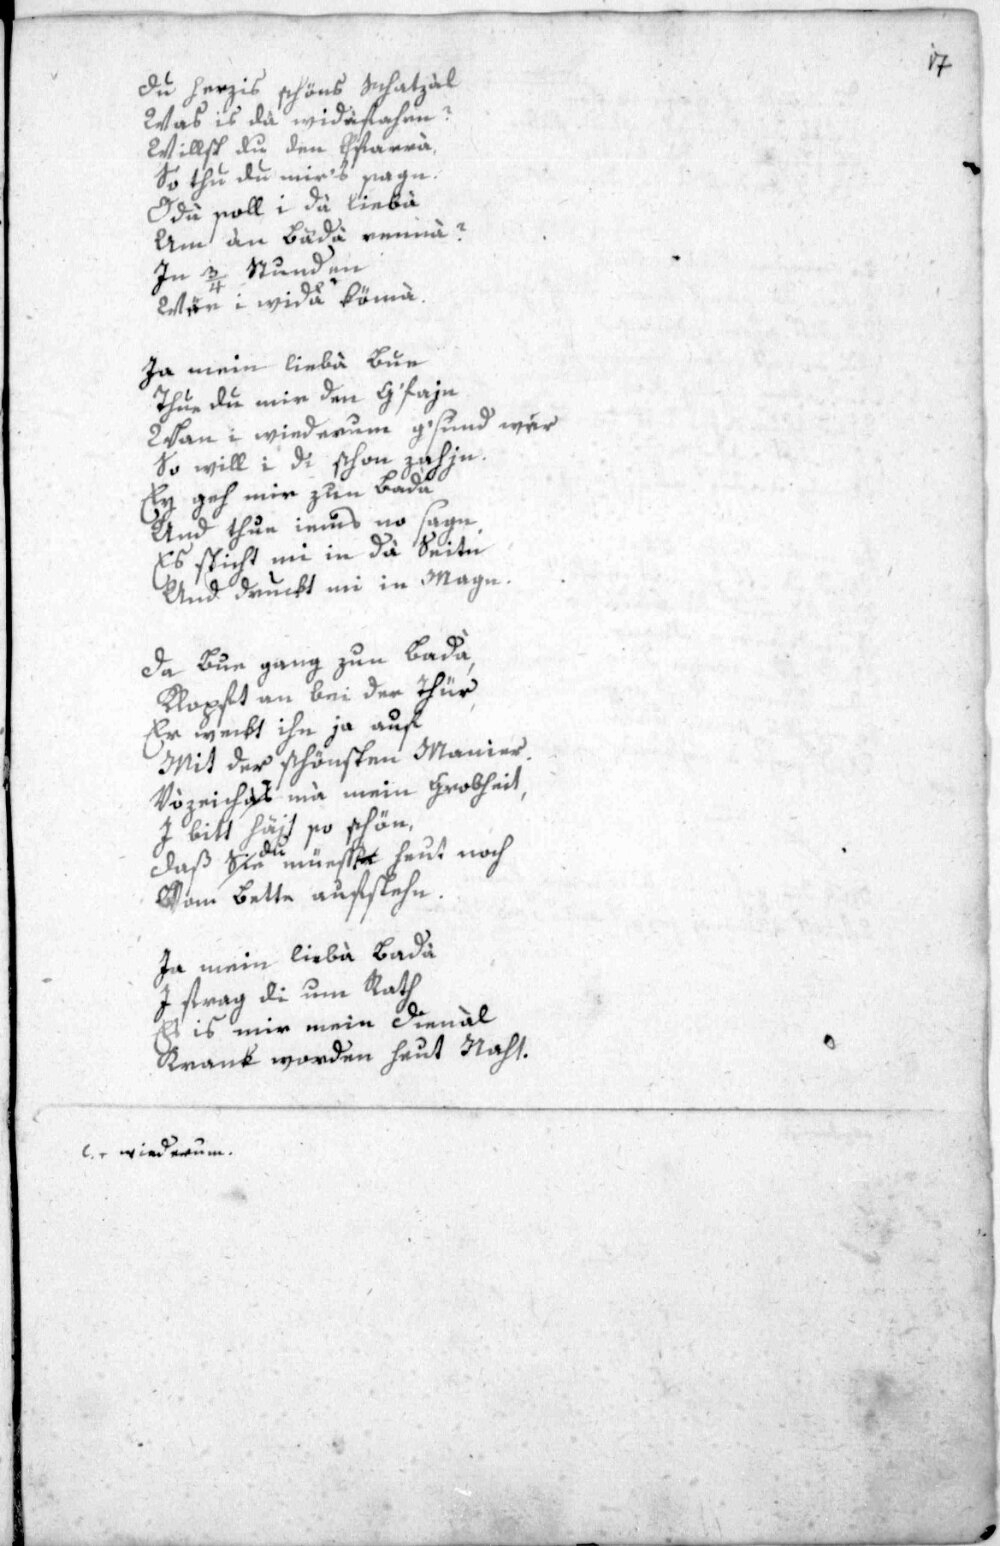 17
Du herzis schöns Schatzàl
Was is dà widàfahrn?
Willst du den Pfarrà,
So thu du mir's sagn.
Odà soll i dà liebà
Um àn Bàdà rennà?
In 3/4 Stunden
Wär i widà kömà.
Ja mein liebà Bue
Thue du mir den G'fajn
Wan i wiederum g'sund wär
So will i di schon zahjn.
Ey geh mir zum Badà
Und thue iems no sagn,
Es sticht mi in dà Seitn
Und druckt mi in Magn.
Da Bue gang zun Badà,
Klopft an bei der Thür,
Er weckt ihn ja auf
Mit der schönsten Manier.
Vòzeichàs mà mein Grobheit,
I bitt häjt so schön,
du
Daß Sie müesst heut noch
Vom Bette aufstehn.
Ja mein liebà Badà
I frag di um Rath
Es is mir mein Dienàl
Krank worden heut Naht.
wiederum.